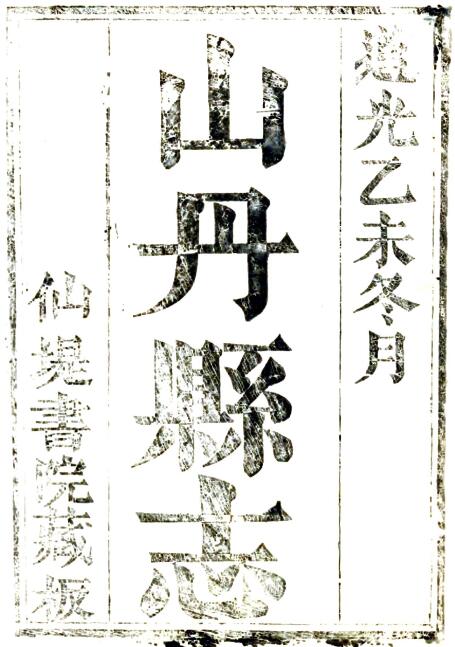 道光乙未冬月
山丹縣志
仙堤書院藏板